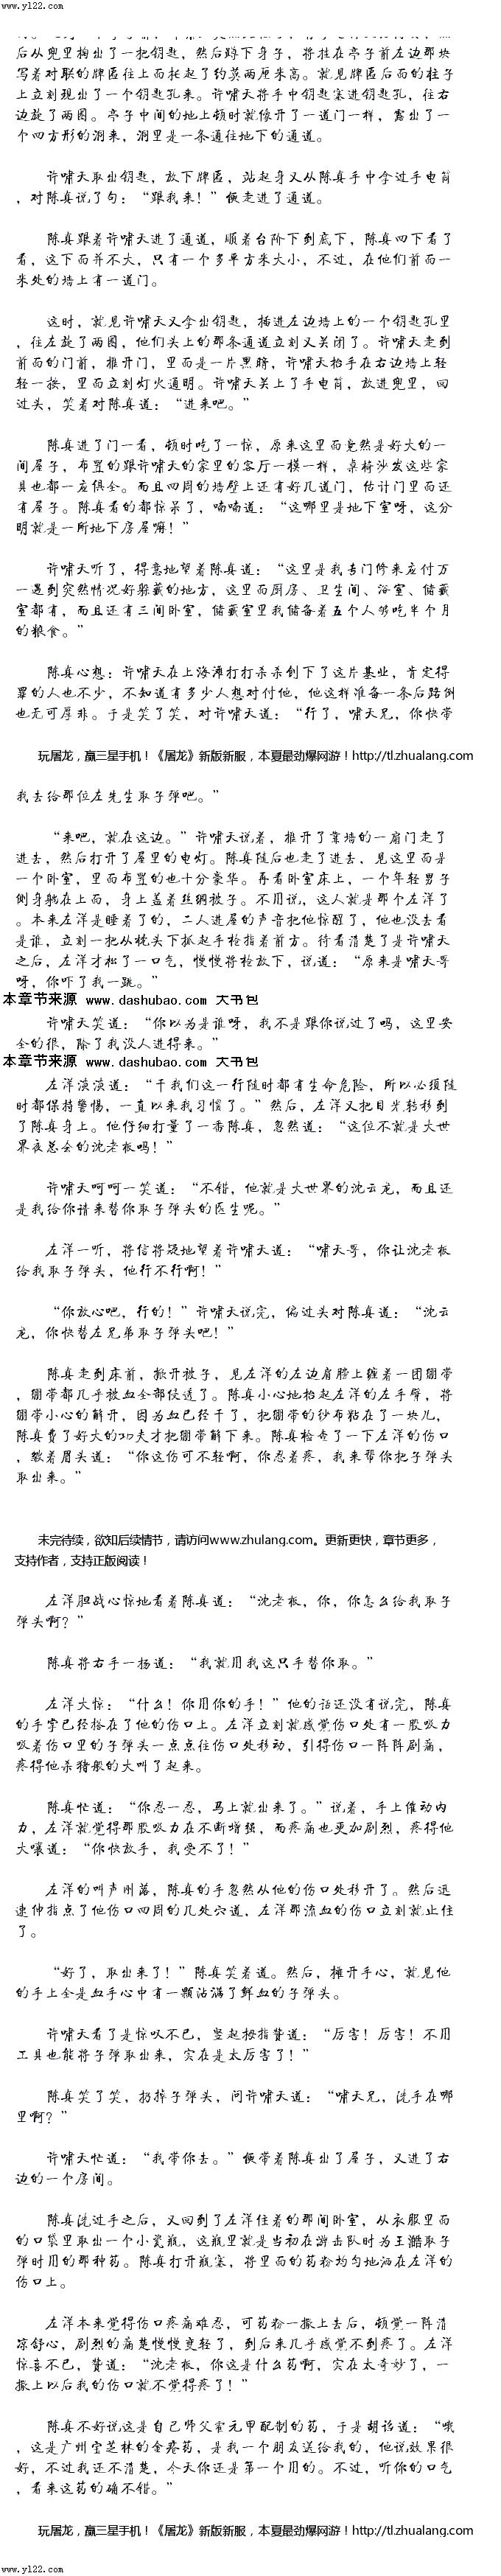 www.yl22.com
后从兜里掏出了一把钥匙，然后蹲下身子，将挂在亭子前左边那块
写着对联的牌匾往上面托起了约莫两厘米高。就见牌匾后面的柱子
上立刻现出了一个钥匙孔来。许啸天将手中钥匙塞进钥匙孔，往右
边旋了两圈。亭子中间的地上顿时就像开了一道门一样，露出了一
个四方形的洞来，洞里是一条通往地下的通道。
许啸天取出钥匙，放下牌匾，站起身又从陈真手中拿过手电筒
，对陈真说了句：“跟我来！”便走进了通道。
陈真跟着许啸天进了通道，顺着台阶下到底下，陈真四下看了
看，这下面并不大，只有一个多平方米大小，不过，在他们前面一
米处的墙上有一道门。
这时，就见许啸天又拿出钥匙，插进左边墙上的一个钥匙孔里
，往左旋了两圈，他们头上的那条通道立刻又关闭了。许啸天走到
前面的门前，推开门，里面是一片黑暗，许啸天抬手在右边墙上轻
轻一按，里面立刻灯火通明。许啸天关上了手电筒，放进兜里，回
过头，笑着对陈真道：“进来吧。”
陈真进了门一看，顿时吃了一惊，原来这里面竟然是好大的一
间屋子，布置的跟许啸天的家里的客厅一模一样，桌椅沙发这些家
具也都一应俱全。而且四周的墙壁上还有好几道门，估计门里面还
有屋子。陈真看的都惊呆了，喃喃道：“这哪里是地下室呀，这分
明就是一所地下房屋嘛！”
许啸天听了，得意地望着陈真道：“这里是我专门修来应付万
一遇到突然情况好躲藏的地方，这里面厨房、卫生间、浴室、储藏
室都有，而且还有三间卧室，储藏室里我储备着五个人够吃半个月
的粮食。”
陈真心想：许啸天在上海滩打打杀杀创下了这片基业，肯定得
罪的人也不少，不知道有多少人想对付他，他这样准备一条后路倒
也无可厚非。于是笑了笑，对许啸天道：“行了，啸天兄，你快带
玩屠龙，赢三星手机！《屠龙》新版新服，本夏最劲爆网游！http://tl.zhualang.com
我去给那位左先生取子弹吧。”
“来吧，就在这边。”许啸天说着，推开了靠墙的一扇门走了
进去，然后打开了屋里的电灯。陈真随后也走了进去，见这里面是
一个卧室，里面布置的也十分豪华。再看卧室床上，一个年轻男子
侧身躺在上面，身上盖着丝绸被子。不用说，这人就是那个左洋了
。本来左洋是睡着了的，二人进屋的声音把他惊醒了，他也没去看
是谁，立刻一把从枕头下抓起手枪指着前方。待看清楚了是许啸天
之后，左洋才松了一口气，慢慢将枪放下，说道：“原来是啸天哥
呀，你吓了我一跳。”
本章节来源 www.dashubao.com 大书包
许啸天笑道：“你以为是谁呀，我不是跟你说过了吗，这里安
全的很，除了我没人进得来。”
本章节来源 www.dashubao.com 大书包
左洋淡淡道：“干我们这一行随时都有生命危险，所以必须随
时都保持警惕，一直以来我习惯了。”然后，左洋又把目光转移到
了陈真身上。他仔细打量了一番陈真，忽然道：“这位不就是大世
界夜总会的沈老板吗！”
许啸天呵呵一笑道：“不错，他就是大世界的沈云龙，而且还
是我给你请来替你取子弹头的医生呢。”
左洋一听，将信将疑地望着许啸天道：“啸天哥，你让沈老板
给我取子弹头，他行不行啊！”
“你放心吧，行的！”许啸天说完，偏过头对陈真道：“沈云
龙，你快替左兄弟取子弹头吧！”
陈真走到床前，掀开被子，见左洋的左边肩膀上缠着一团绷带
，绷带都几乎被血全部侵透了。陈真小心地抬起左洋的左手臂，将
绷带小心的解开，因为血已经干了，把绷带的纱布粘在了一块儿，
陈真费了好大的功夫才把绷带解下来。陈真检查了一下左洋的伤口
，皱着眉头道：“你这伤可不轻啊，你忍着疼，我来帮你把子弹头
取出来。”
未完待续，欲知后续情节，请访问www.zhulang.com。更新更快，章节更多，
支持作者，支持正版阅读！
左洋胆战心惊地看着陈真道：“沈老板，你，你怎么给我取子
弹头啊？”
陈真将右手一扬道：“我就用我这只手替你取。”
左洋大惊：“什么！你用你的手！”他的话还没有说完，陈真
的手掌已经捂在了他的伤口上。左洋立刻就感觉伤口处有一股吸力
吸着伤口里的子弹头一点点往伤口处移动，引得伤口一阵阵剧痛，
疼得他杀猪般的大叫了起来。
陈真忙道：“你忍一忍，马上就出来了。”说着，手上催动内
力，左洋就觉得那股吸力在不断增强，而疼痛也更加剧烈，疼得他
大嚷道：“你快放手，我受不了！”
左洋的叫声刚落，陈真的手忽然从他的伤口处移开了。然后迅
速伸指点了他伤口四周的几处穴道，左洋那流血的伤口立刻就止住
了。
“好了，取出来了！”陈真笑着道。然后，摊开手心，就见他
的手上全是血手心中有一颗沾满了鲜血的子弹头。
许啸天看了是惊叹不已，竖起拇指赞道：“厉害！厉害！不用
工具也能将子弹取出来，实在是太厉害了！”
陈真笑了笑，扔掉子弹头，问许啸天道：“啸天兄，洗手在哪
里啊？”
许啸天忙道：“我带你去。”便带着陈真出了屋子，又进了右
边的一个房间。
陈真洗过手之后，又回到了左洋住着的那间卧室，从衣服里面
的口袋里取出一个小瓷瓶，这瓶里就是当初在游击队时为王皓取子
弹时用的那种药。陈真打开瓶塞，将里面的药粉均匀地洒在左洋的
伤口上。
左洋本来觉得伤口疼痛难忍，可药粉一撒上去后，顿觉一阵清
凉舒心，剧烈的痛楚慢慢变轻了，到后来几乎感觉不到疼了。左洋
惊喜不已，赞道：“沈老板，你这是什么药啊，实在太奇妙了，一
撒上以后我的伤口就不觉得疼了！”
陈真不好说这是自己师父霍元甲配制的药，于是胡诌道：“哦
，这是广州宝芝林的金疮药，是我一个朋友送给我的，他说效果很
好，不过我还不清楚，今天你还是第一个用的。不过，听你的口气
，看来这药的确不错。”
玩屠龙，赢三星手机！《屠龙》新版新服，本夏最劲爆网游！http://tl.zhualang.com
www.yl22.com